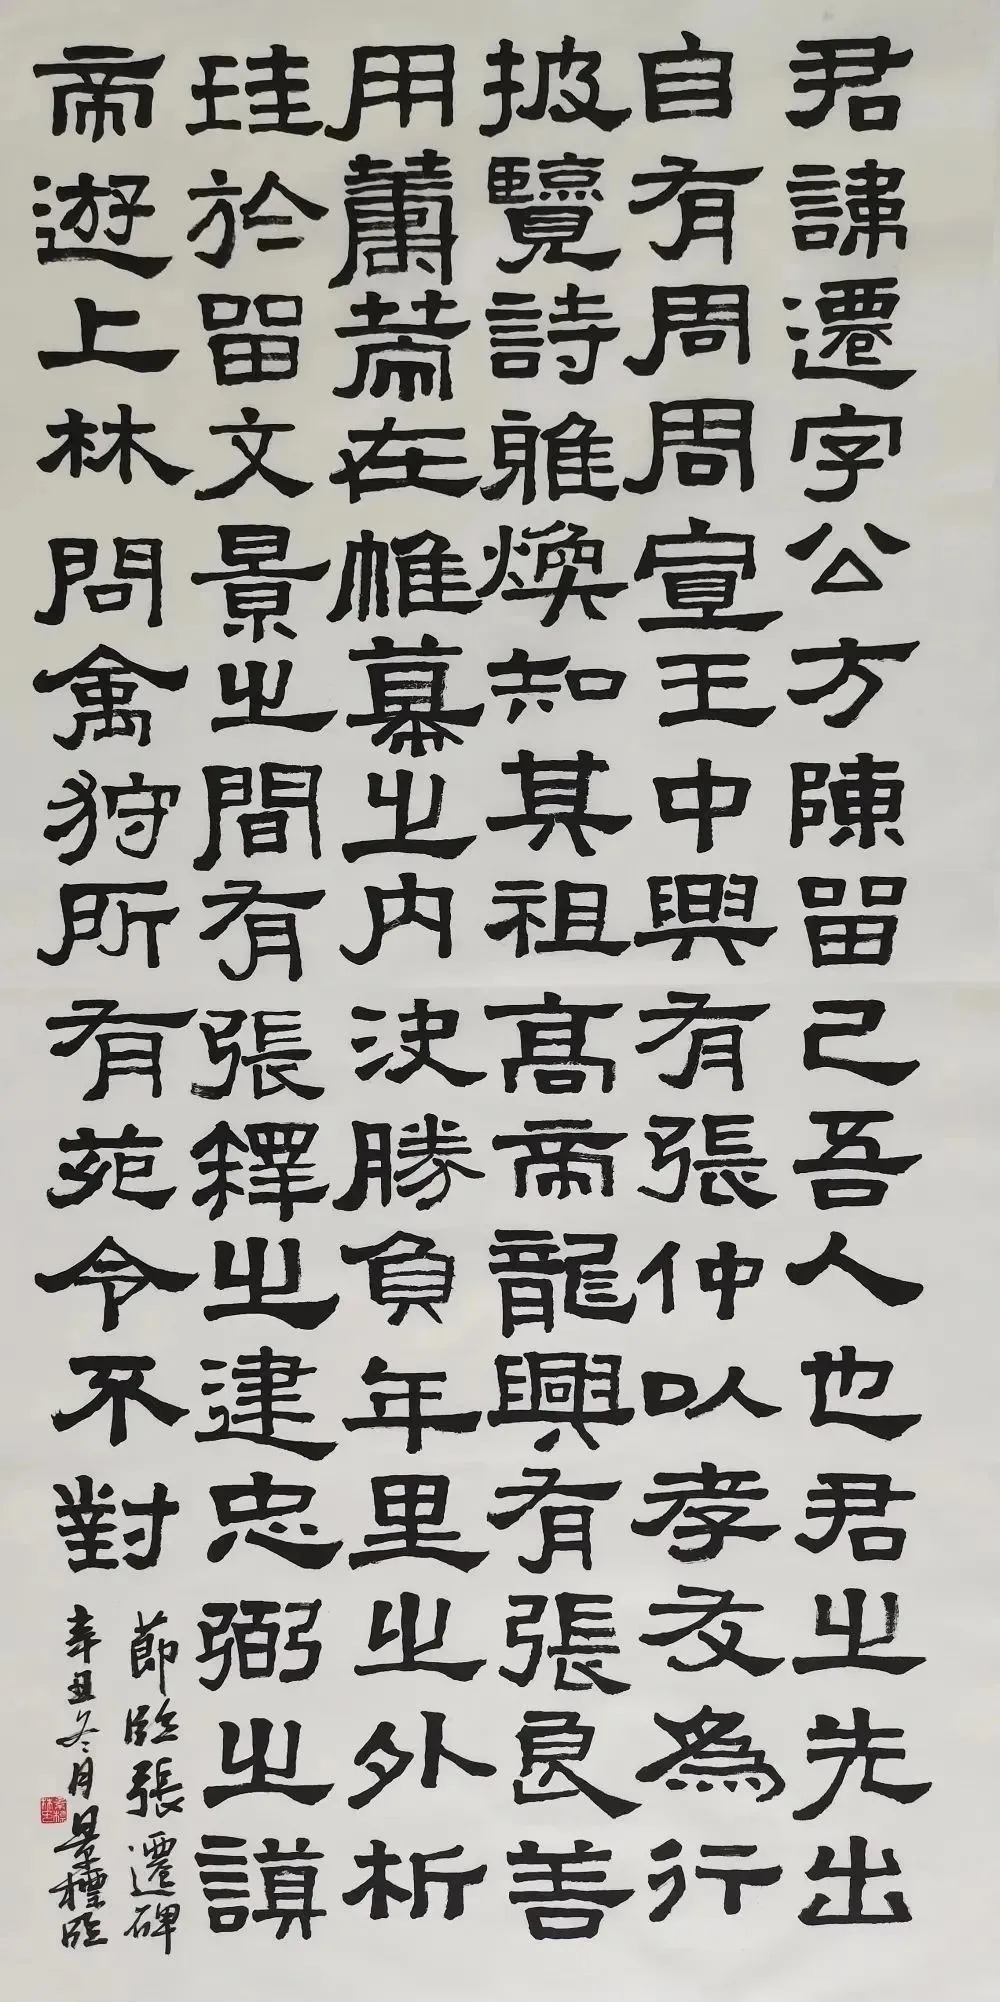 君諱遷字公方陳留己吾人也君之先出
自有周周宣王中興有張仲以孝友為行
披覽詩雅煥知其祖高帝龍興有張良善
用籌策在帷幕之内決勝負年里之外析
珪於留文景之間有張釋之建忠弼之謨
帝遊上林問禽狩所有苑令不對
節臨張遷碑
辛丑冬月景標臨